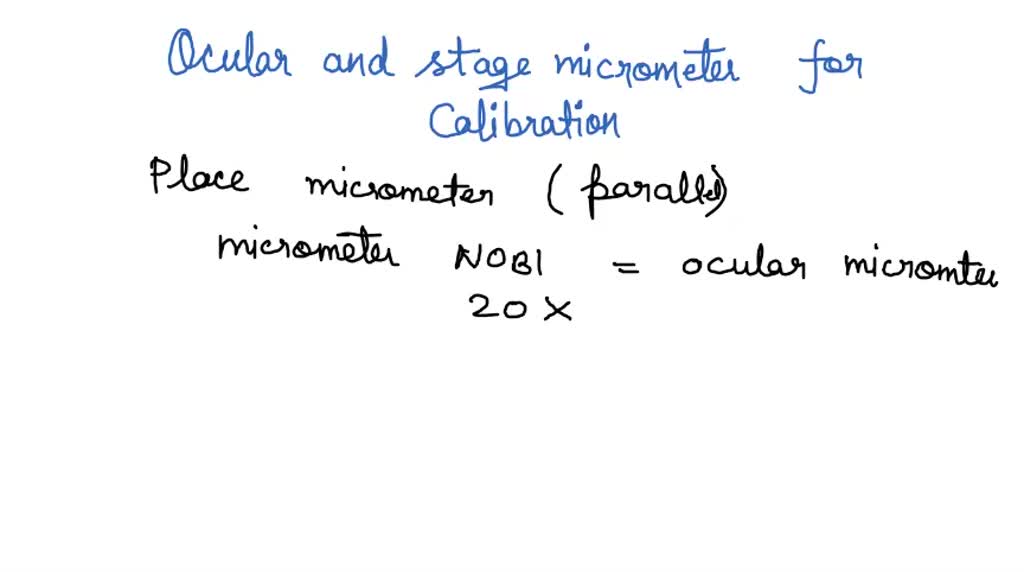 Ocular and stage micrometer for
Calibration
Place micrometer (parallel)
micrometer NOBI = ocular micromter
20 X